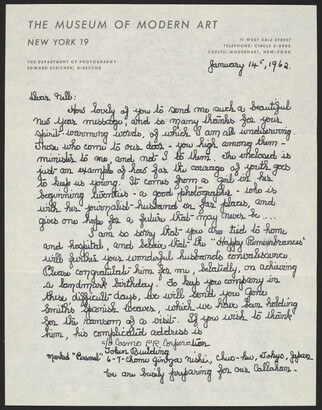 THE MUSEUM OF MODERN ART
NEW YORK 19
11 WEST 53rd STREET
TELEPHONE: CIRCLE 5-8900
CABLES: MODERNART, NEW-YORK
THE DEPARTMENT OF PHOTOGRAPHY
EDWARD STEICHEN, DIRECTOR
January 14th, 1962.
Dear Nell:
How lovely of you to send me such a beautiful
new year message, and so many thanks for your
spirit-warming words, of which I am all undeserving.
Those who come to our door - you high among them -
minister to me, and not I to them. The enclosed is
just an example of how far the courage of youth goes
to keep us young. It comes from a girl in her
beginning twenties - a good photographer - who is
with her journalist-husband in far places, and
gives one hope for a future that may never be ...
I am so sorry that you are tied to home
and hospital, and believe that the "Happy Remembrances"
will further your wonderful husband's convalescence.
Please congratulate him for me, belatedly, on achieving
a landmark birthday. To keep you company in
these difficult days, we will send you Gene
Smith's Spanish Weaver, which we have been holding
for the ransom of a visit. If you wish to thank
him, his complicated address is
c/o Cosmo P.R. Corporation
Tokin Building
Marked "Personal" 6-7-Chome Ginza Nishi, Chuo-ku, Tokyo, Japan
We are busily preparing for our Callahan -